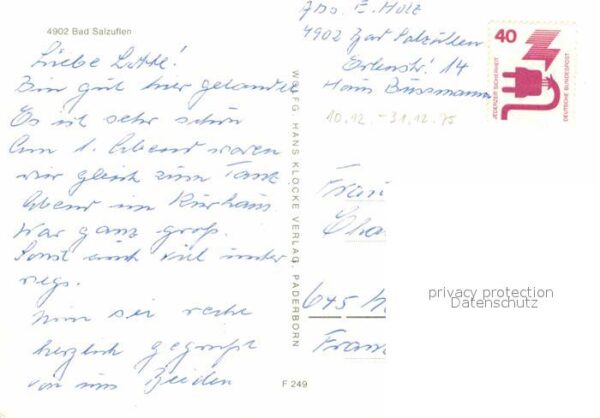 4902 Bad Salzuflen
Liebe Lotte!
Bin gut hier gelandet
Es ist sehr schön
Am 1. Abend waren
wir gleich zum Tanz
Abend im Kurhaus
War ganz groß.
Sonst auch viel unter
wegs.
Nun sei recht
herzlich gegrüßt
von uns Beiden
WOLFG. HANS KLOCKE VERLAG, PADERBORN
F 249
Abs. E. Holz
4902 Bad Salzuflen
Erlenstr. 14
Haus Bussmann
10.12.-31.12.75
40
JEDERZEIT SICHERHEIT
DEUTSCHE BUNDESPOST
Frau
Cha
645 H
Fran
privacy protection
Datenschutz